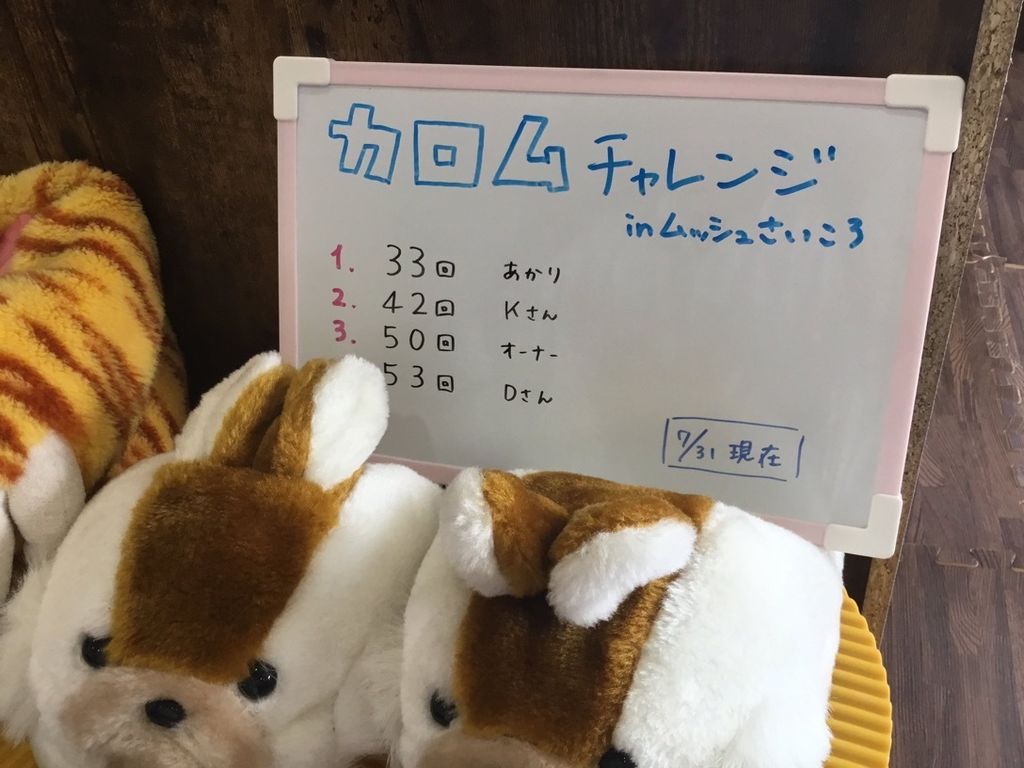 カロムチャレンジ
inムッシュさいころ
1. 33回 あかり
2. 42回 Kさん
3. 50回 オーナー
53回 Dさん
7/31 現在